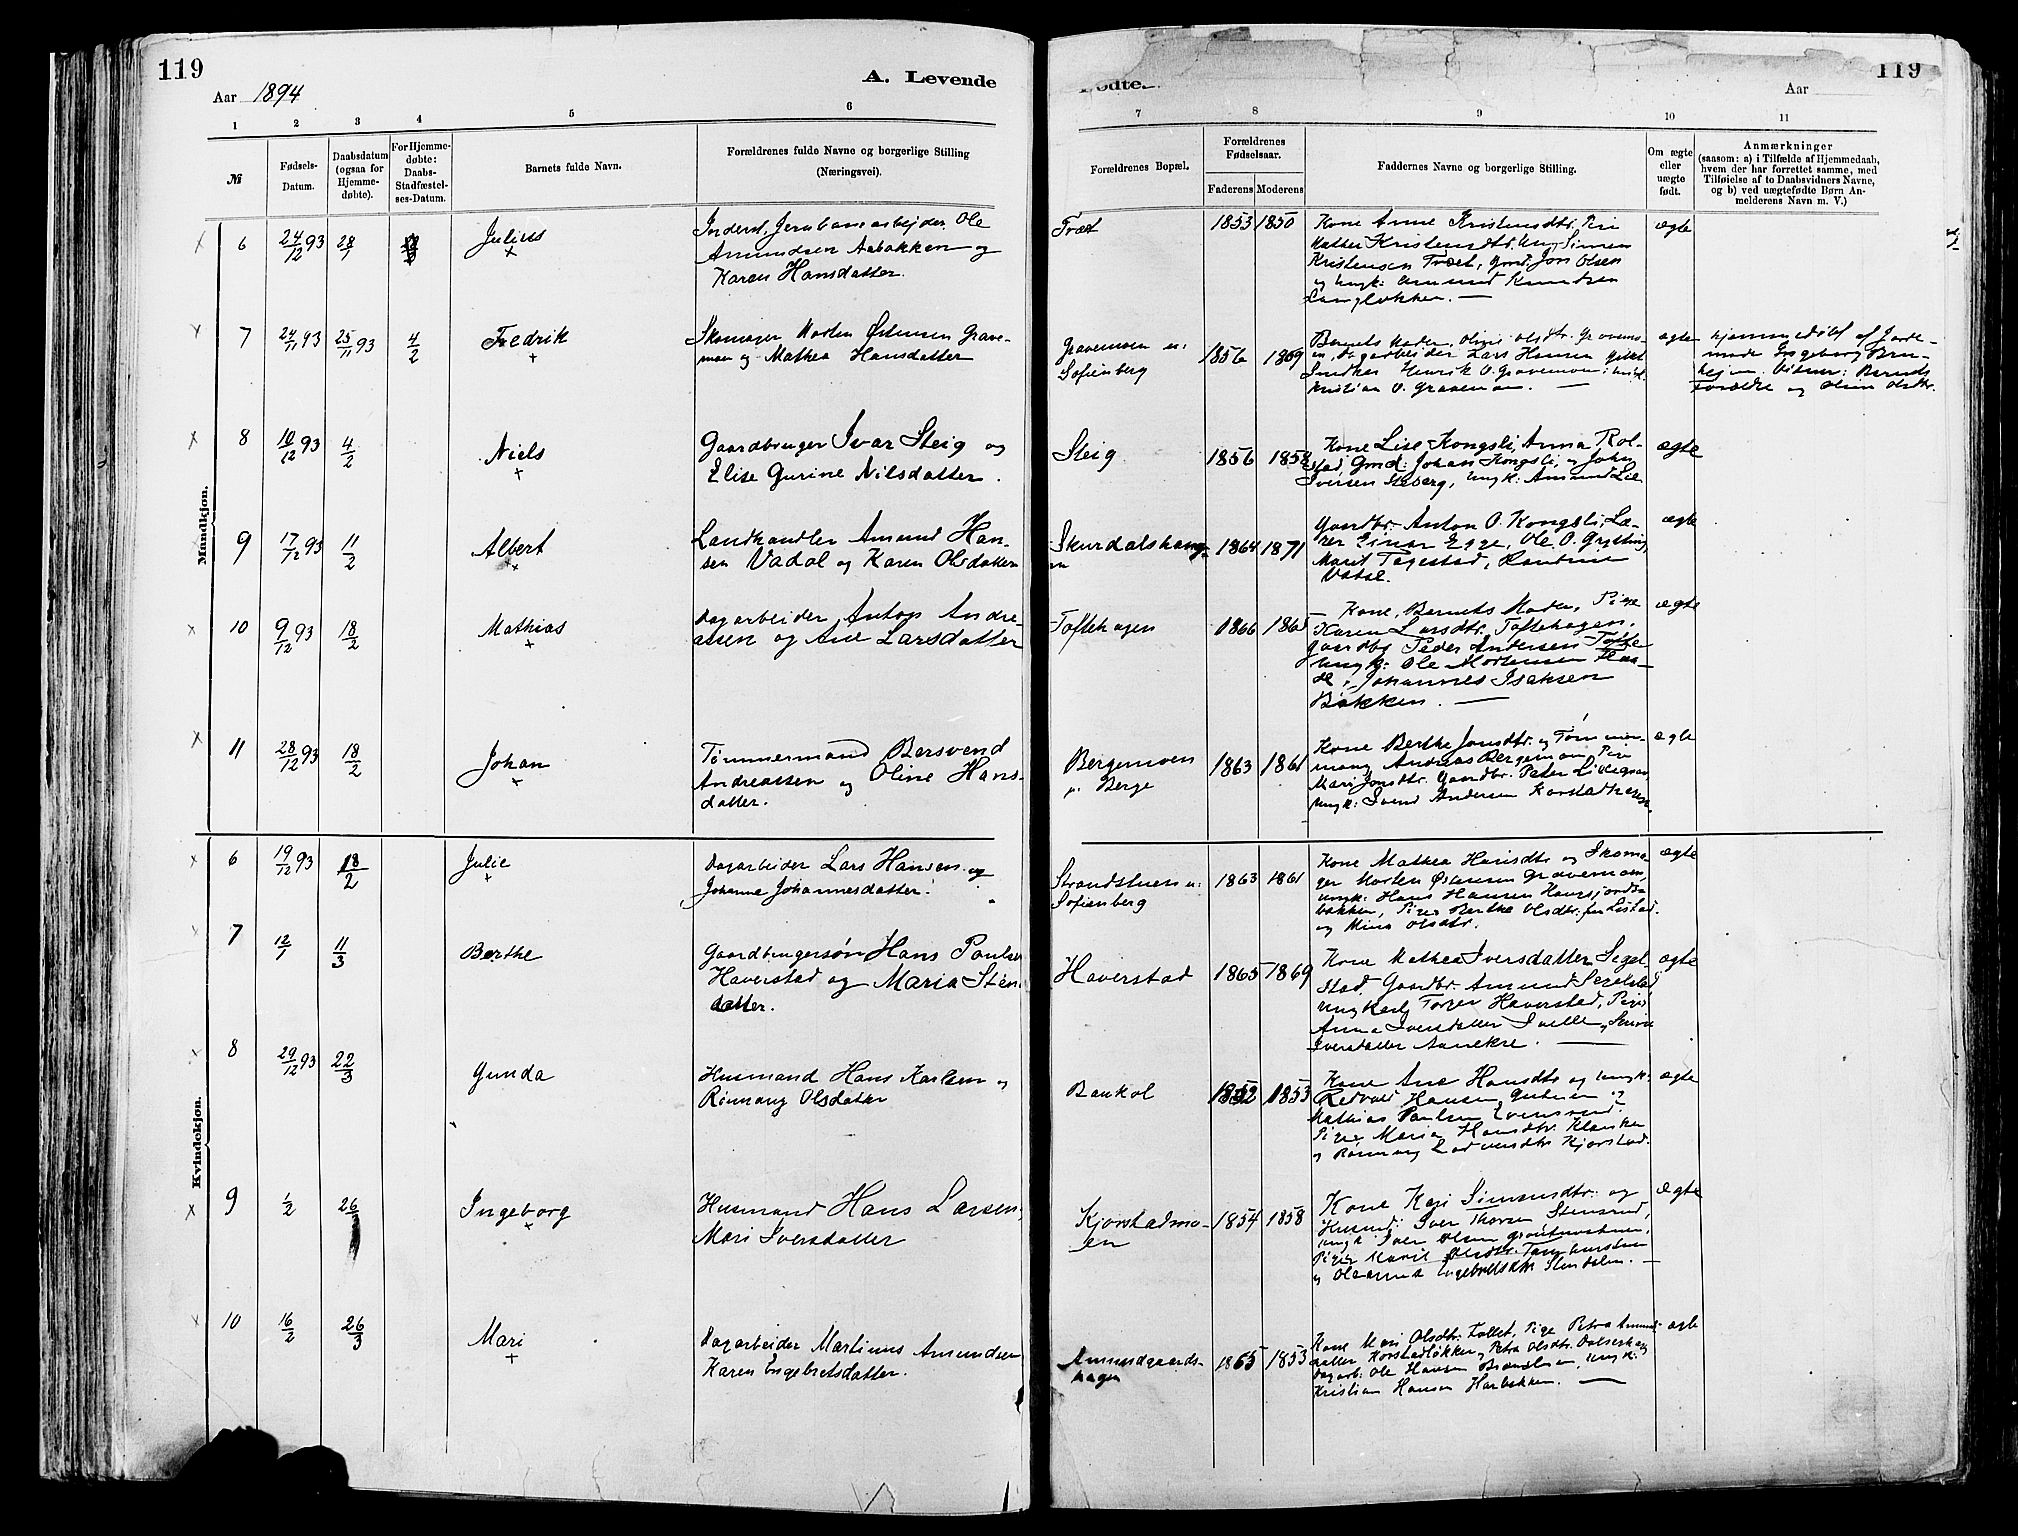 119
Aar 1894
A. Levende
1 2 3 4 5 6
№
Fødsels-
Datum.
Daabsdatum
(ogsaa for
Hjemme-
døbte).
For Hjemme-
døbte:
Daabs-
Stadfæstel-
ses-Datum.
Barnets fulde Navn.
Forældrenes fulde Navne og borgerlige Stilling
(Næringsvei).
Mandkjøn.
6 24/12 93 28/1 Julius
Ole
Amundsen Aabakken og
Karen Hansdatter.
7 24/11 93 25/11 93 4/2 Fredrik
Skomager Morten Østensen Grave-
moen og Mathea Hansdatter
8 10/12 93 4/2 Niels
Gaardbruger Ivar Steig og
Elise Gurine Nilsdatter.
9 17/12 93 11/2 Albert
Landhandler Amund Han-
sen Vadal og Karen Olsdatter
10 9/12 93 18/2 Mathias
Dagarbeider Anton Andre-
assen og Ane Larsdatter
11 28/12 93 18/2 Johan
Tømmermand Bersvend
Andreassen og Oline Hans-
datter.
Kvindekjøn.
6 19/12 93 18/2 Julie
Dagarbeider Lars Hansen og
Johanne Johannesdatter.
7 12/1 11/3 Berthe
Gaardbrugersøn Hans Paulse
Haverstad og Maria Sten
datter.
8 29/12 93 22/3 Gunda
Husmand Hans Karlsen og
Rønnaug Olsdatter
9 1/2 26/3 Ingeborg
Husmand Hans Larsen
Mari Iversdatter
10 16/2 26/3 Mari
Dagarbeider Martinus Amundsen
Karen Engebretsdatter.
119
Aar
7 8 9 10 11
Forældrenes Bopæl.
Forældrenes
Fødselsaar.
Faderens Moderens
Faddernes Navne og borgerlige Stilling.
Om ægte
eller
uægte
født.
Anmærkninger
(saasom: a) i Tilfælde af Hjemmedaab,
hvem der har forrettet samme, med
Tilføielse af to Daabsvidners Navne,
og b) ved uægtefødte Børn An-
melderens Navn m. V.)
Træt 1853 1850 Kone Anne Kristensdtr. Pige
Kristensdtr. Ung. Simen
Kristensen Træt, Gmd. Jon Olsen
og Ungk: Amund Knudsen
Langløkken.
ægte
Gravemoen u:
Sofienberg
1856 1859
Barnets Moder, Olsdtr. Gravemo-
en, Dagarbeider Lars Hansen
Henrik O. Gravemoen
Kristian O. Gravemoen.
ægte
Hjemmedøbt af Jorde-
mode Ingeborg Bru-
Vidner: Barnets
Forældre og
Steig 1856 1858
Kone Lise Kongsli, Anna Rol-
stad, Gmd: Johan Kongsli, Johs
Iversen Ungk: Amund Lie
ægte
Skurdalshaug-
en
1864 1871
Gaardbr. Anton O. Kongsli, Læ-
rer Einar Egge, Ole O. Grytting
Marit Tagestad,
Vadal.
ægte
Toftehagen 1866 1865
Kone, Barnets Moder, Pige
Karen Larsdtr. Toftehagen,
Gaardbr Peder Andersen Tofte
Ungk: Ole Mortensen
Johannes Isaksen
Bakken.
ægte
Bergemoen
u. Berge
1863 1861
Kone Berthe Jonsdtr. og Tømmer-
mand Andreas Bergemoen, Pige
Mari Jonsdtr. Gaardbr. Peter
Ungk: Svend Andersen
ægte
Strandstuen u:
Sofienberg
1863 1861
Kone Mathea Hansdtr og Skoma-
ger Morten Østensen Gravemoen,
Ungk: Hans Hansen
bakken, Pige Berthe Olsdtr. Listad.
og Mina Olsdtr.
ægte
Haverstad 1865 1869
Kone Mathea Iversdatter Segel-
stad Gaardbr. Amund Segelstad
Ungkarl Torger Haverstad, Pige
Anna Iversdatter
Iversdatter
ægte
Baukol 1852 1853
Kone Ane Hansdtr og Ungk:
Redvald Hansen
Mathias Paulsen
Pige Maria Hansdtr.
og Rønnaug Kjorstad.
ægte
Kjorstadmo-
en
1854 1858
Kone Kari Simensdtr. og
Husmd: Iver Thorsen Stensrud,
Ungk Iver Olsen
Pige Marit Olsdtr.
og Oleanna Engebretsdtr
ægte
Amundgaards-
hagen
1865 1853
Kone Mari Olsdtr. Pige Petra Amund-
datter Korstadløkken, Petra Olsdtr.
Dagarb: Ole Hansen Ungk:
Kristian Hansen
ægte